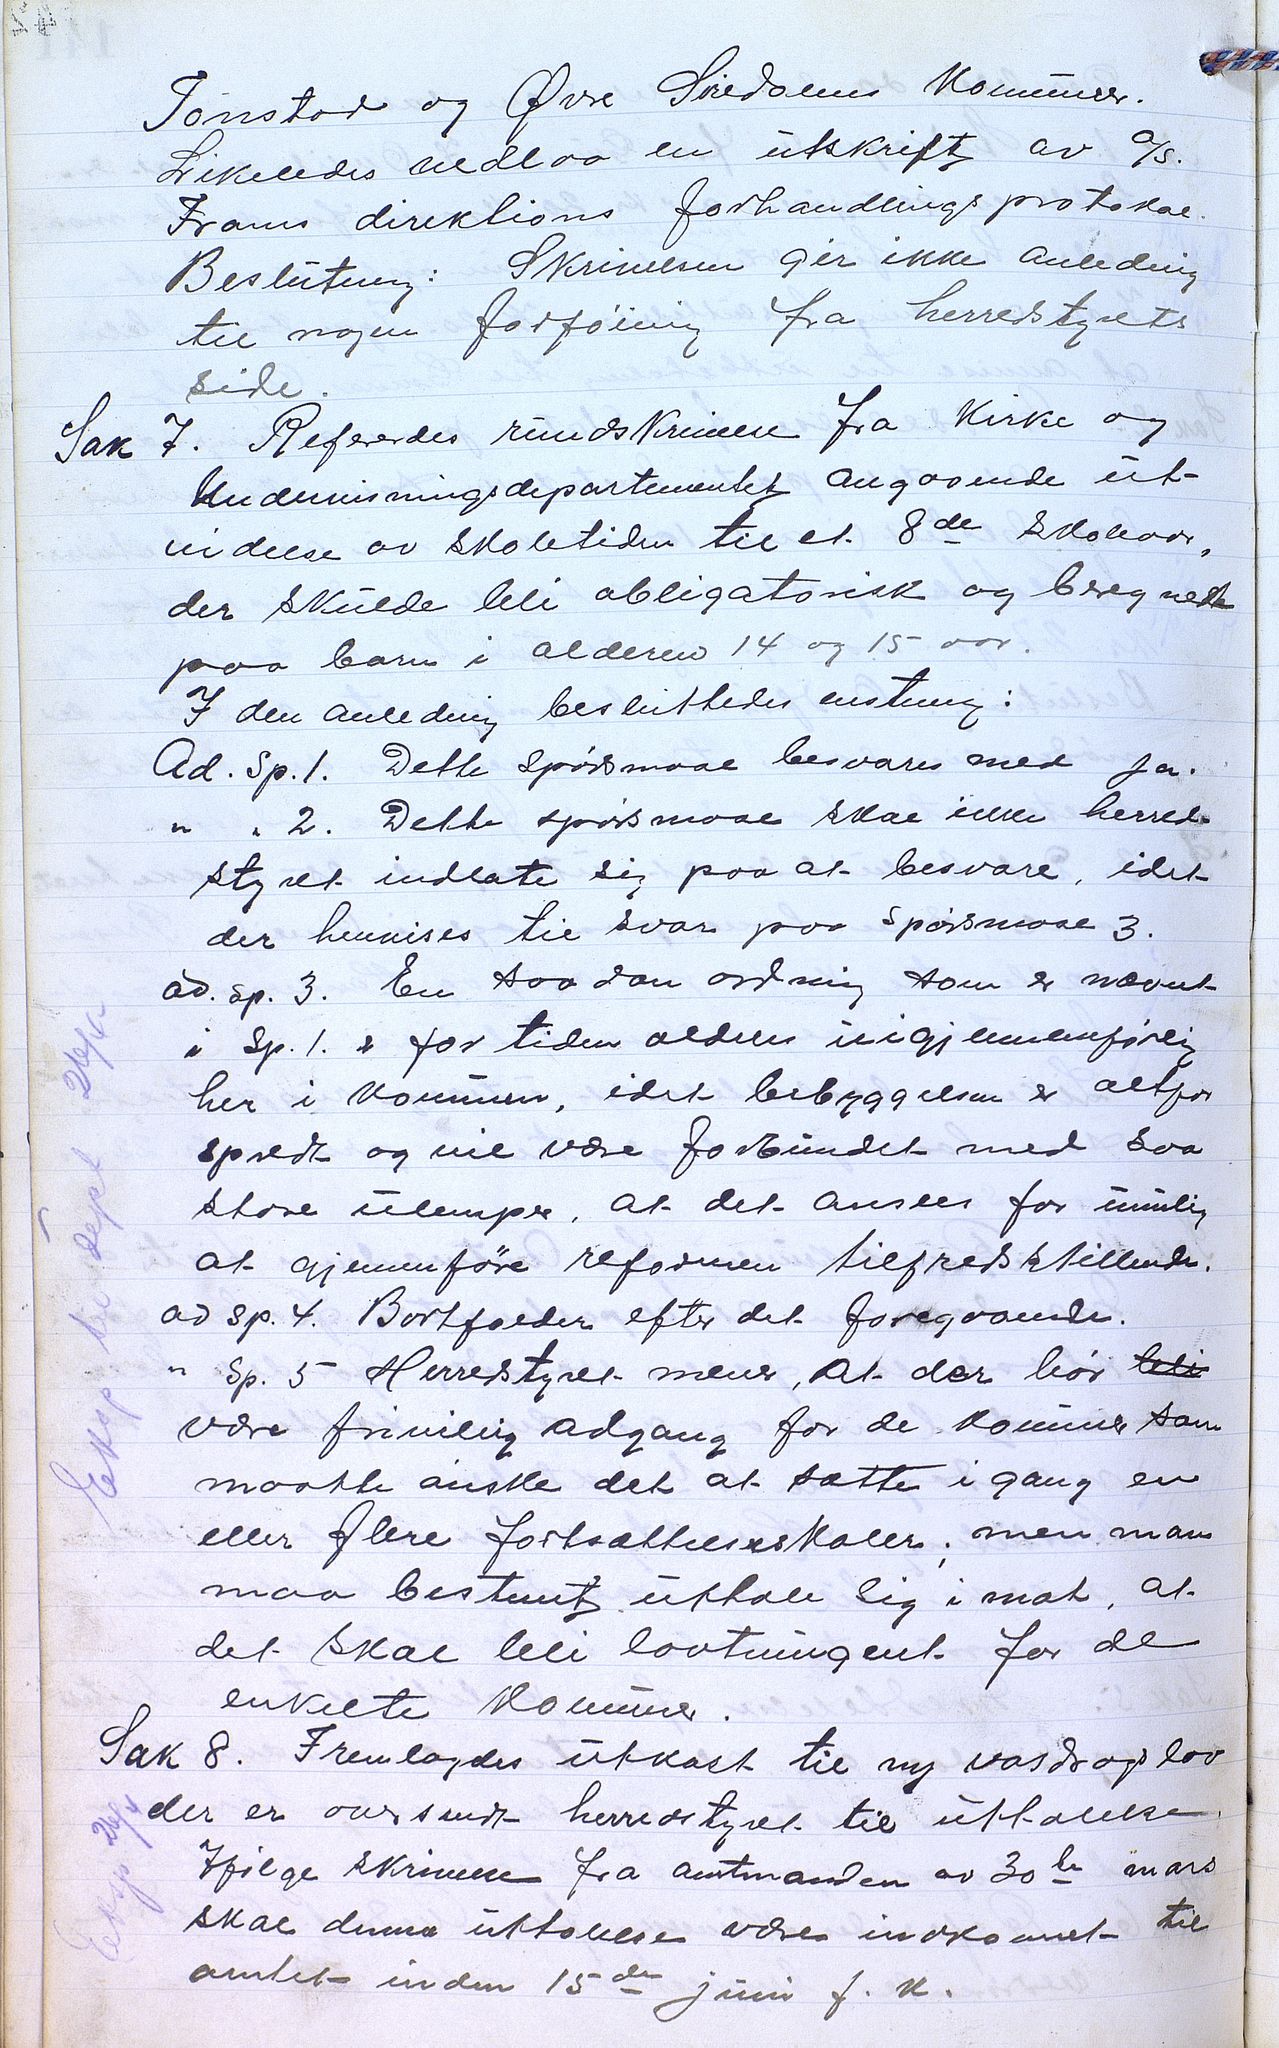 Tonstad og Øvre Siredalens Kommuner.
Likeledes nedlaa en utskrift av a/s.
Frams direktions forhandlingsprotokol.
Beslutning: Skrivelsen gir ikke anledning
til nogen forføining fra herredstyrets
side.
Sak 7. Refererdes rundskrivelse fra Kirke og
Undervisningsdepartementet angaaende ut-
videlse av skoletiden til et 8de skoleaar,
der skulde bli obligatorisk og beregnede
paa barn i alderen 14 og 15 aar.
I den anledning besluttedes enstemmig:
Ad. Sp. 1. Dette spörsmaal besvares med ja.
" " 2. Dette spörsmaal skal ikke herred-
styret indlate sig paa at besvare, idet
der henvises til svar paa spörsmaal 3.
ad. sp. 3. En saadan ordning som er nævnt
i Sp. 1. er for tiden aldeles uigjennemförlig
her i Kommunen, idet bebyggelsen er altfor
spredt og vil være forbundet med saa
store ulemper, at det ansees for umulig
at gjennemföre reformen tilfredsstillende.
ad sp. 4. Bortfalder efter det foregaaende.
" Sp. 5 Herredstyret mener, at der bör bli
være frivillig adgang for de Kommuner som
maatte önske det at sætte igang en
eller flere fortsættelsesskoler; men man
maa bestemt uttale sig imot, at
det skal bli lovtvungent for de
enkelte Kommuner.
Sak 8. Fremlagdes utkast til ny vasdragslov
der er oversendt herredstyret til uttalelse.
Ifölge skrivelse fra amtmanden av 30te mars
skal denne uttalelse være indkommet til
amtet inden 15de juni f. k.
Eksp. til dept 26/4
Eksp 26/4